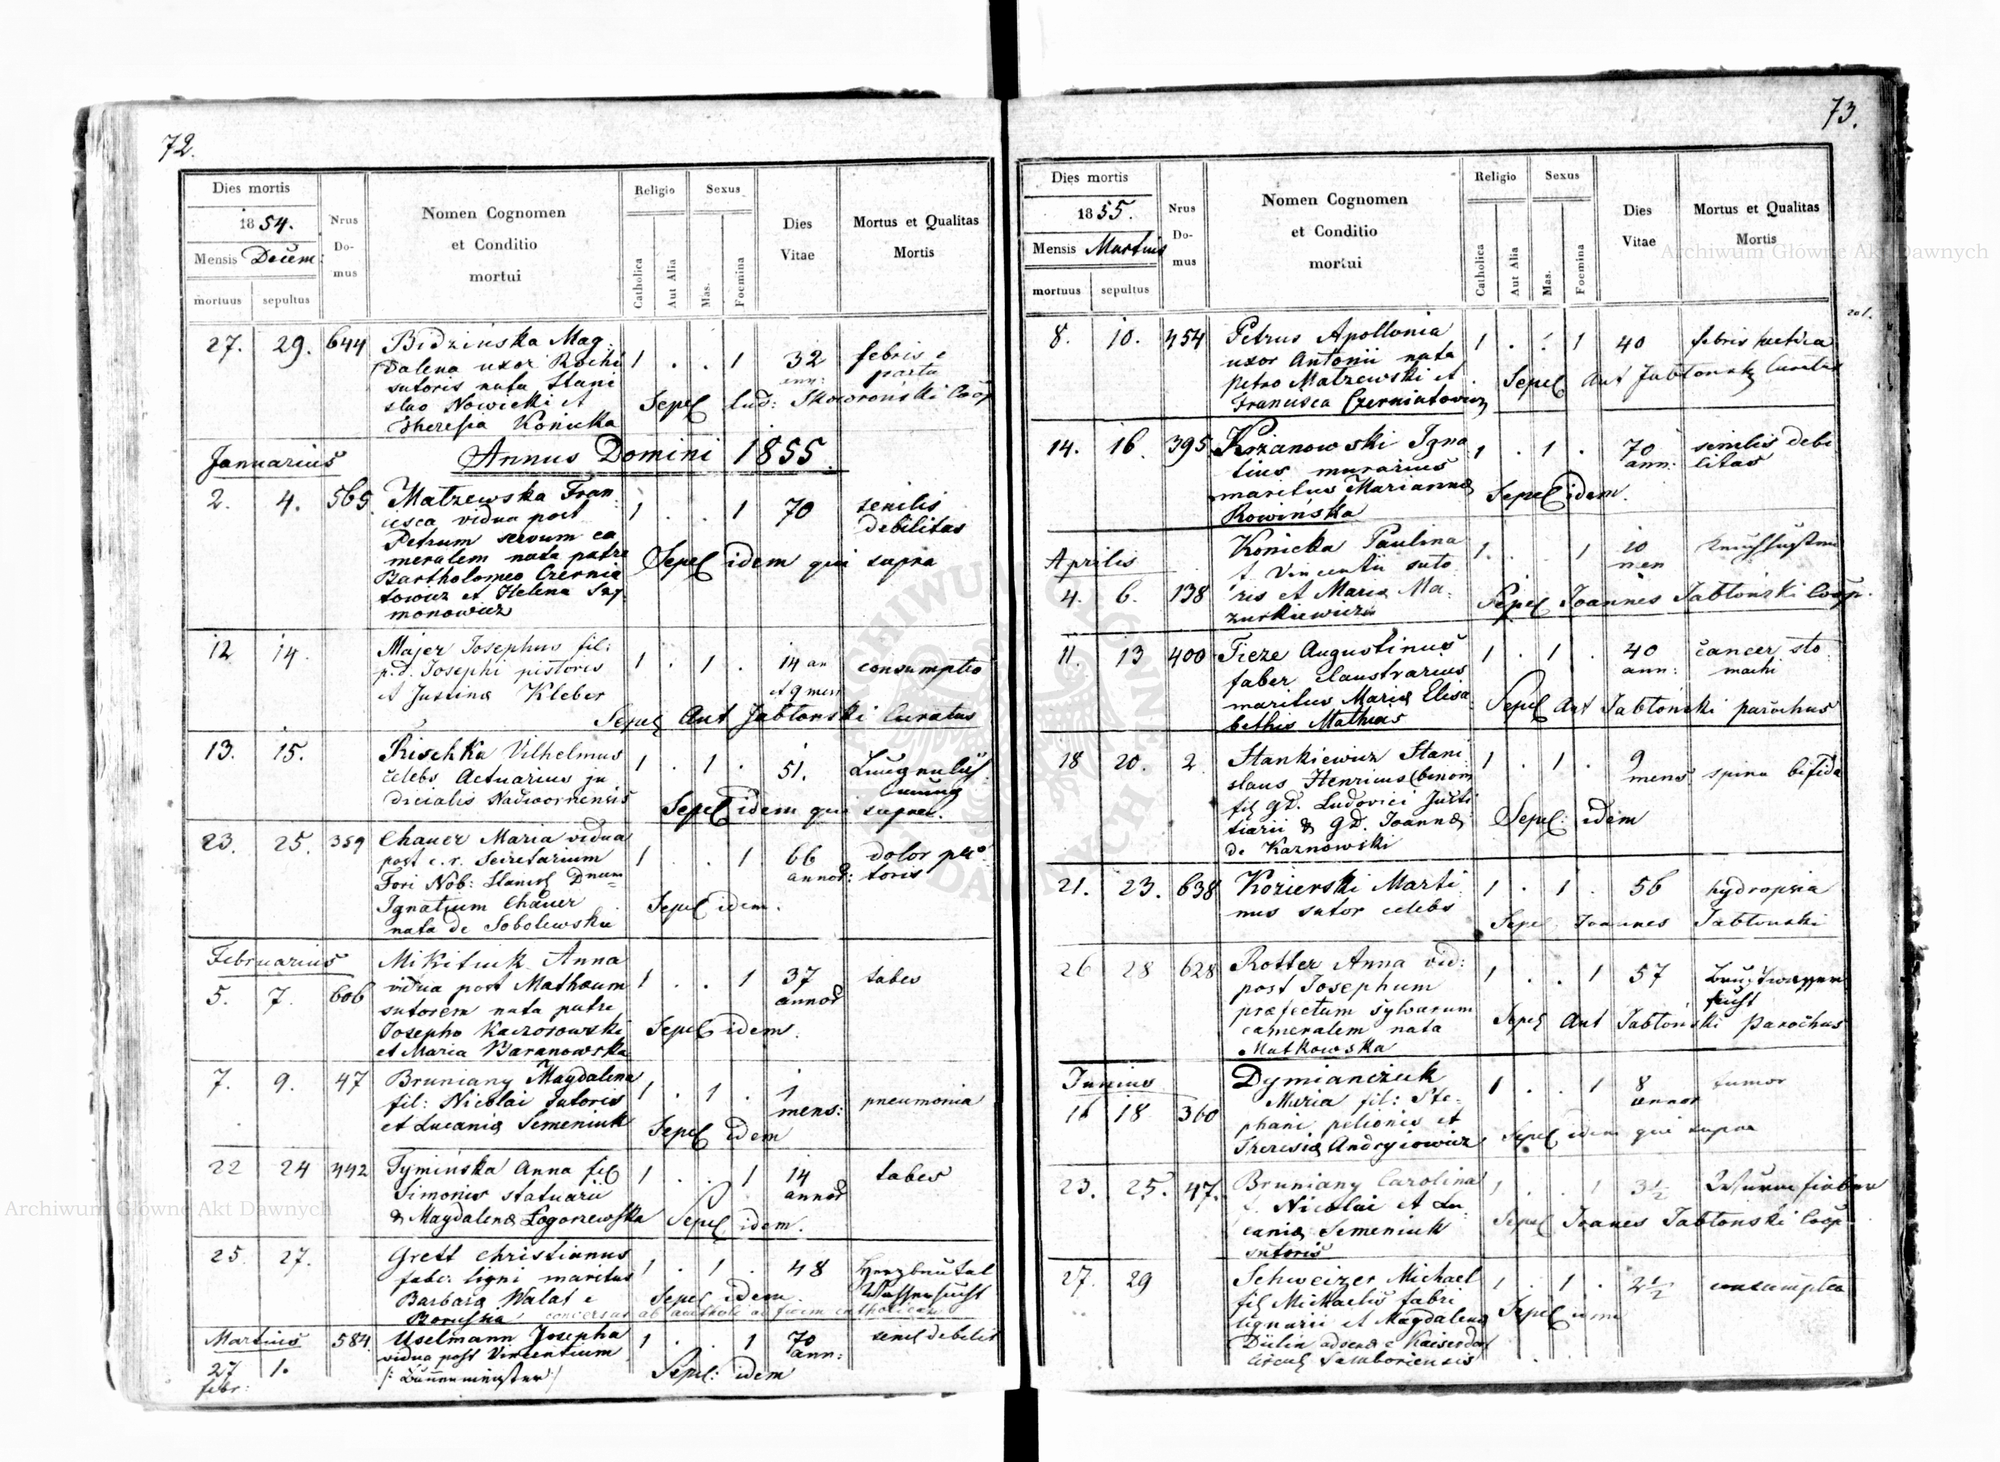 72.
Dies mortis
1854.
Mensis Decem:
mortuus sepultus
Nrus Do- mus
Nomen Cognomen
et Conditio
mortui
Religio
Catholica
Aut Alia
Sexus
Mas.
Foemina
Dies
Vitae
Mortus et Qualitas
Mortis
27. 29. 644 Bidzińska Mag
dalena uxor Rochi 1 . . 1 32 febris e
sutoris nata Stani ann: partu
slao Nowicki et Sepel Lud: Skoworoński Coop
Theresia Konicka
Januarius Annus Domini 1855.
2. 4. 565. Matzewska Fran
cisca vidua post 1 . . 1 70 senilis
Petrum servum ca debilitas
meralem nata patre Sepel idem qui supra
Bartholomeo Czernia
towicz et Helena Szy
monowicz
12 14. Majer Josephus fil:
p.d. Josephi pistoris 1 . 1 . 14 an consumptio
et Justina Kleber et 9 men
Sepel Ant Jabłonski Curatus
13. 15. Rischka Vilhelmus
celebs Actuarius ju 1 . 1 . 51.
dicialis Nadwornensis Sepel idem qui supra.
23. 25. 359 Chauer Maria vidua
post c. r. Secretarium 1 . . 1 66 dolor pec
Fori Nob: Stanisl Dnum annor: toris
Ignatium Chauer Sepel idem.
nata de Sobolewska
Februarius Mikitiuk Anna
5. 7. 606 vidua post Mathaeum 1 . . 1 37 tabes
sutorem nata patre annor
Josepho Kaczorowski Sepel idem.
et Maria Baranowska
7. 9. 47 Bruniany Magdalena
fil: Nicolai sutoris 1 . 1 . 1 pneumonia
et Lucania Semeniuk mens:
Sepel idem
22 24 442 Tyminska Anna fil 1 . . 1 14 tabes
Simonis statuarii annor
& Magdalena Pogorzewska Sepel idem.
25. 27. Grett Christianus
faber ligni maritus 1 . 1 . 48
Barbara Walat e Sepel idem. Wassersucht
Borussia conversus ab acatholi ad fidem catholicam
Martius 584 Uselmann Josepha 1 . . 1 70 senil debilit
27 1. vidua post Vincentium ann:
febr: Sepel: idem
73.
Dies mortis
1855.
Mensis Martius
mortuus sepultus
Nrus Do- mus
Nomen Cognomen
et Conditio
mortui
Religio
Catholica
Aut Alia
Sexus
Mas.
Foemina
Dies
Vitae
Mortus et Qualitas
Mortis
8. 10. 454 Petrus Apollonia
uxor Antonii nata 1 . . 1 40 febris hectica
Petro Matzewski et Sepel Ant Jabłonski Curatus
Francisca Czerniatowicz
14. 16. 395 Krzanowski Igna
tius murarius 1 . 1 . 70 senilis debi
maritus Marianna ann: litas
Rowińska Sepel idem.
Aprilis Konicka Paulina
4. 6. 138 f. Vincentii suto 1. . . 1 10
ris et Maria Ma- men
zurkiewicz Sepel Joannes Jabłonski Coop.
11. 13 400 Tieze Augustinus
faber claustrarius 1 . 1 . 40 cancer sto
maritus Maria Elisa ann: machi
bethis Mathias Sepel Ant Jabłonski parochus
18 20. 2. Stankiewicz Stani
slaus Henricus (binom 1 . 1 . 9
fil gd. Ludovici Justi mens spina bifida
tiarii & gd. Joanna Sepel: idem
de Kaznowski
21. 23. 638 Kozierski Marti 1 . 1 . 56 hydropsia
nus sutor celebs Sepel Joannes Jabłonski
26 28 628 Rotter Anna vid: 1 . . 1 57
post Josephum
praefectum sylvarum Sepel Ant Jabłonski parochus
cameralem nata
Matkowska
Junius Dymianczuk 1 . . 1 8 tumor
16 18 360 Maria fil: Ste- annor
phani pelionis et Sepel idem qui supra
Theresia Andryiowicz
23. 25. 47. Bruniany Carolina 1 . . 1 3½ Wurmfieber
f. Nicolai et Lu Sepel Joanes Jabłonski Coop
cania Semeniuk
sutoris
27. 29 Schweizer Michael 1 . 1 . 2½ consumptio
fil Michaelis fabri Sepel idem
lignarii et Magdalena
Dülin advena e Kaisersdorf
Circul Samboriensis
Archiwum Główne Akt Dawnych
Archiwum Główne Akt Dawnych